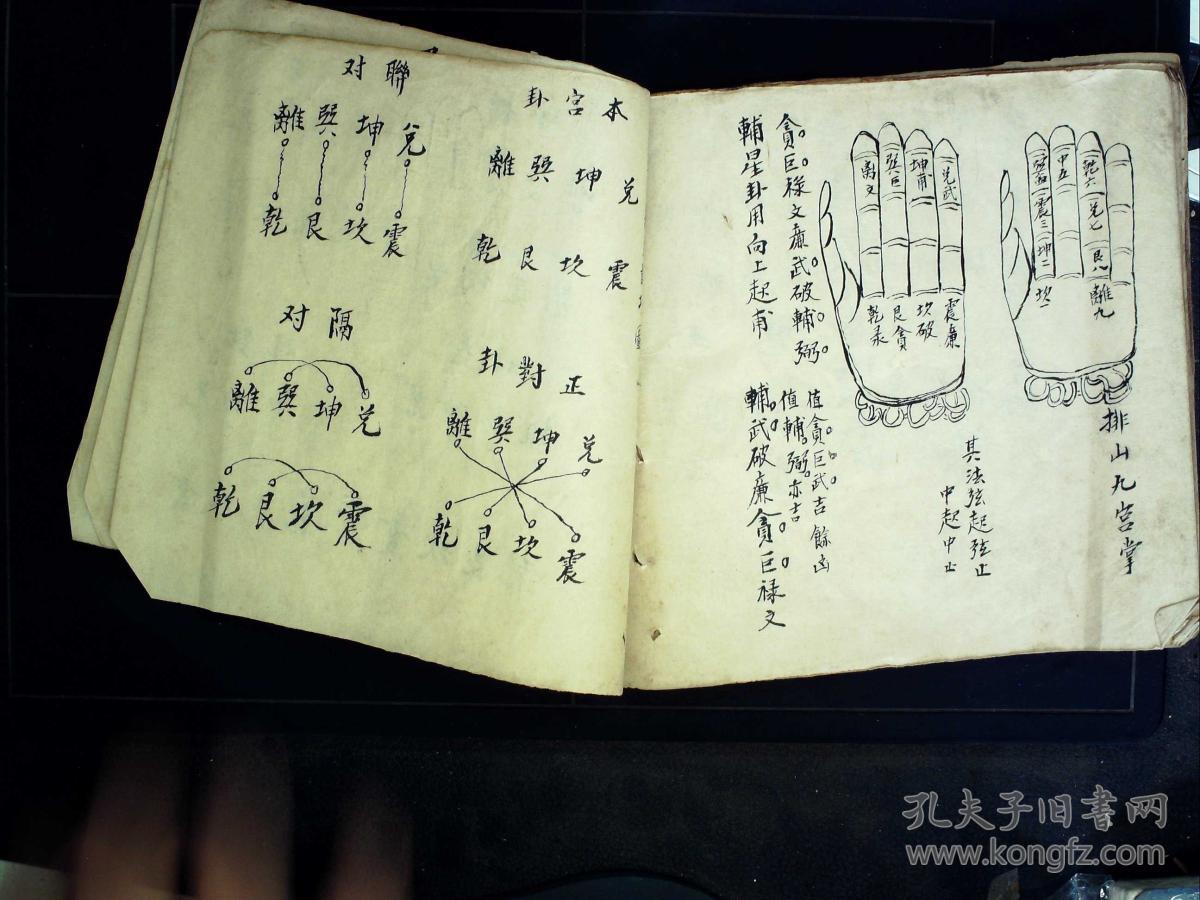 排山九宫掌
乾六 兑七 艮八 離九
中五
震三 坤二 坎一
其法弦起弦止
中起中止
兑武
坤甫
巽巨
离文
震廉
坎破
艮貪
乾禄
值貪巨武吉餘凶
值輔弼亦吉
貪巨禄文廉武破輔弼
輔武破廉貪巨禄文
輔星卦用向上起甫
本宫卦
兑 坤 巽 離
震 坎 艮 乾
正對卦
兑 坤 巽 離
震 坎 艮 乾
聯对
兑 坤 巽 離
震 坎 艮 乾
隔对
兑 坤 巽 離
震 坎 艮 乾
孔夫子旧书网
www.kongfz.com